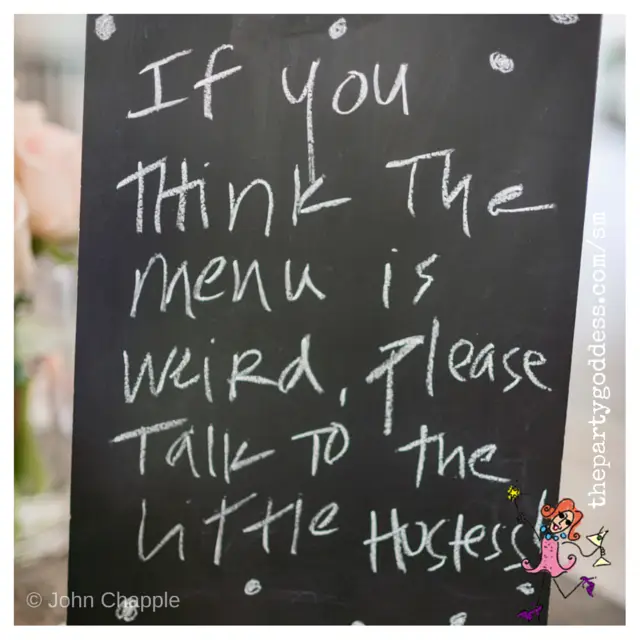 If you
Think The
menu is
weird, please
Talk To the
Little Hostess!
thepartygoddess.com/sm
© John Chapple